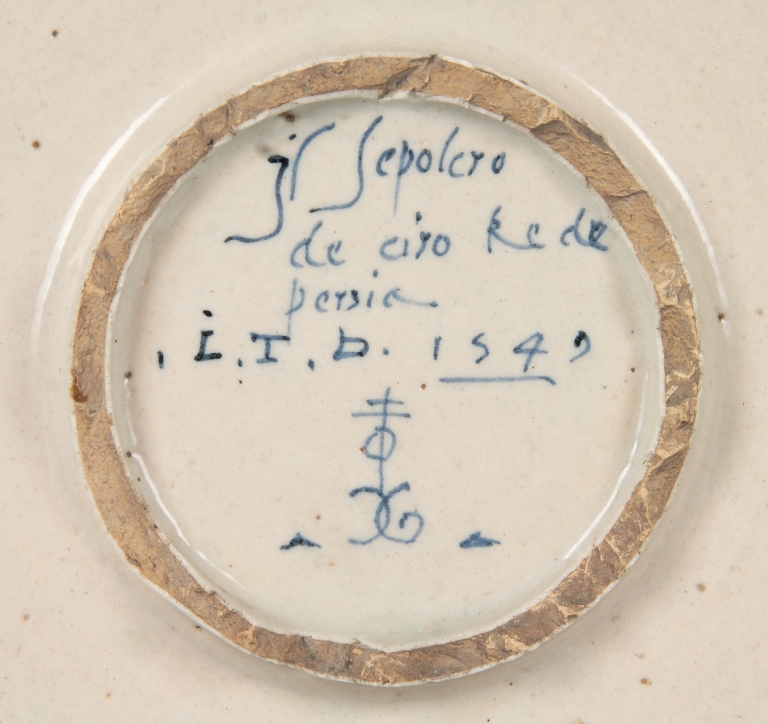 Il Sepolcro
de ciro Re de
persia
. I. T. B. 1549